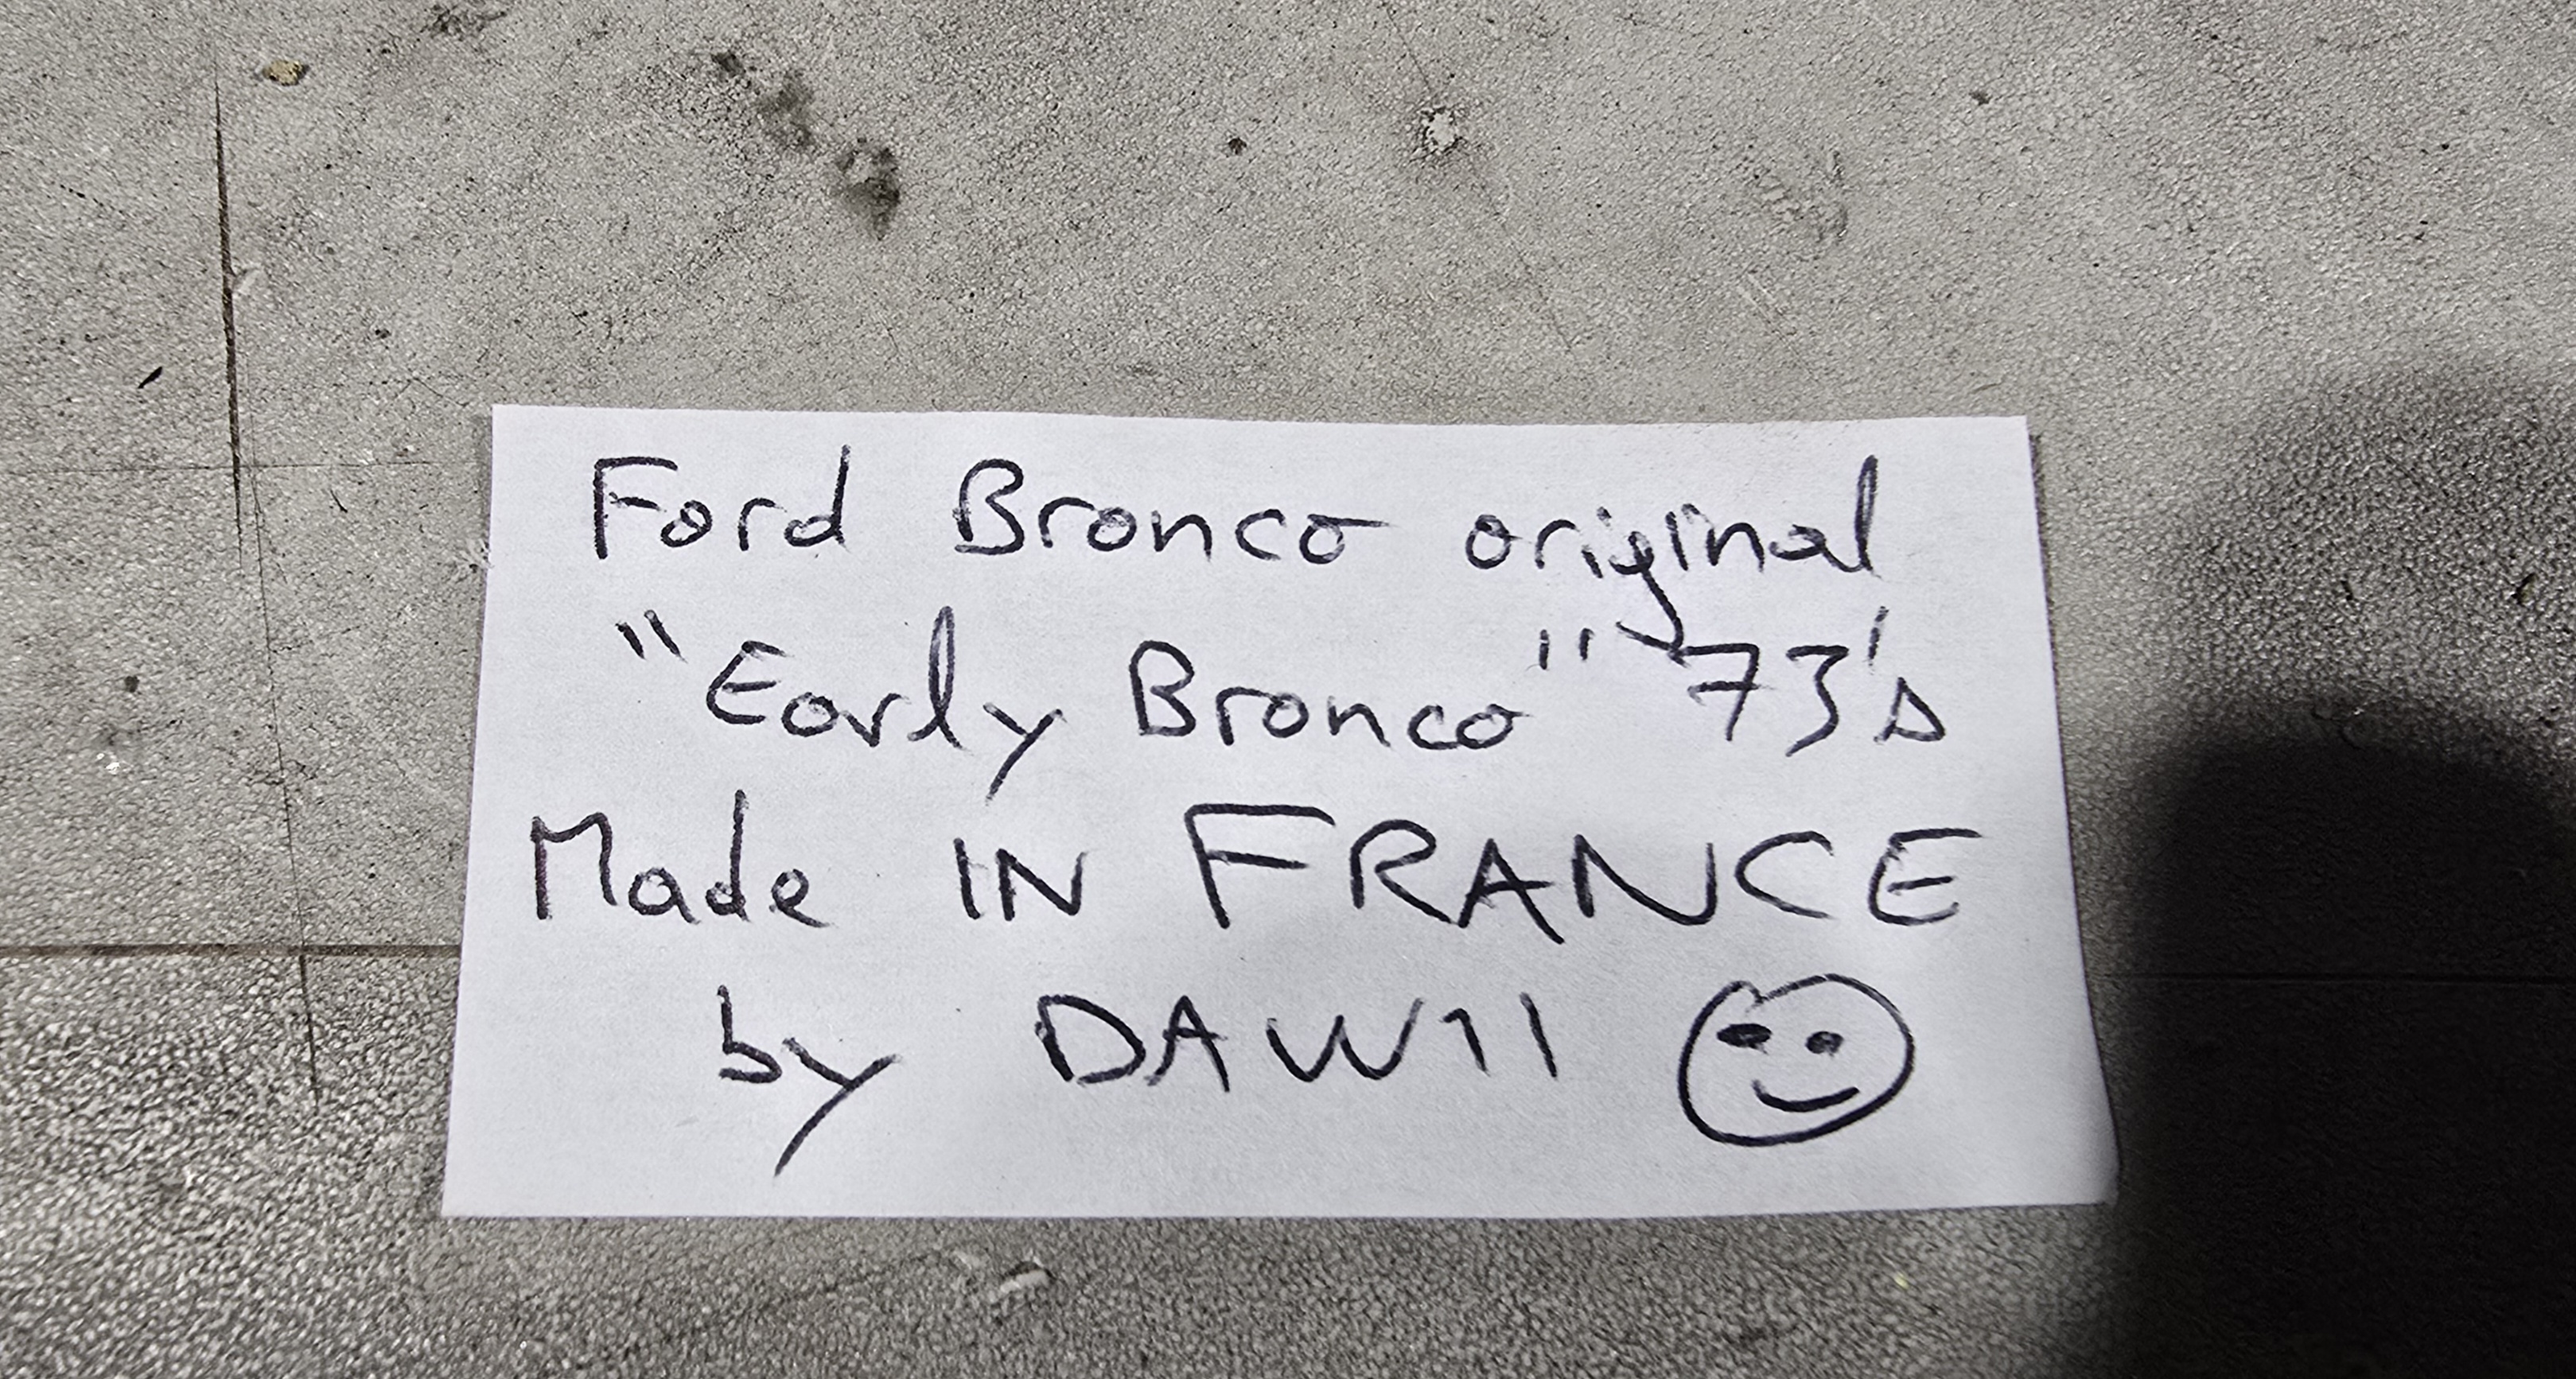 Ford Bronco original
"Early Bronco" 73's
Made IN FRANCE
by DAW11